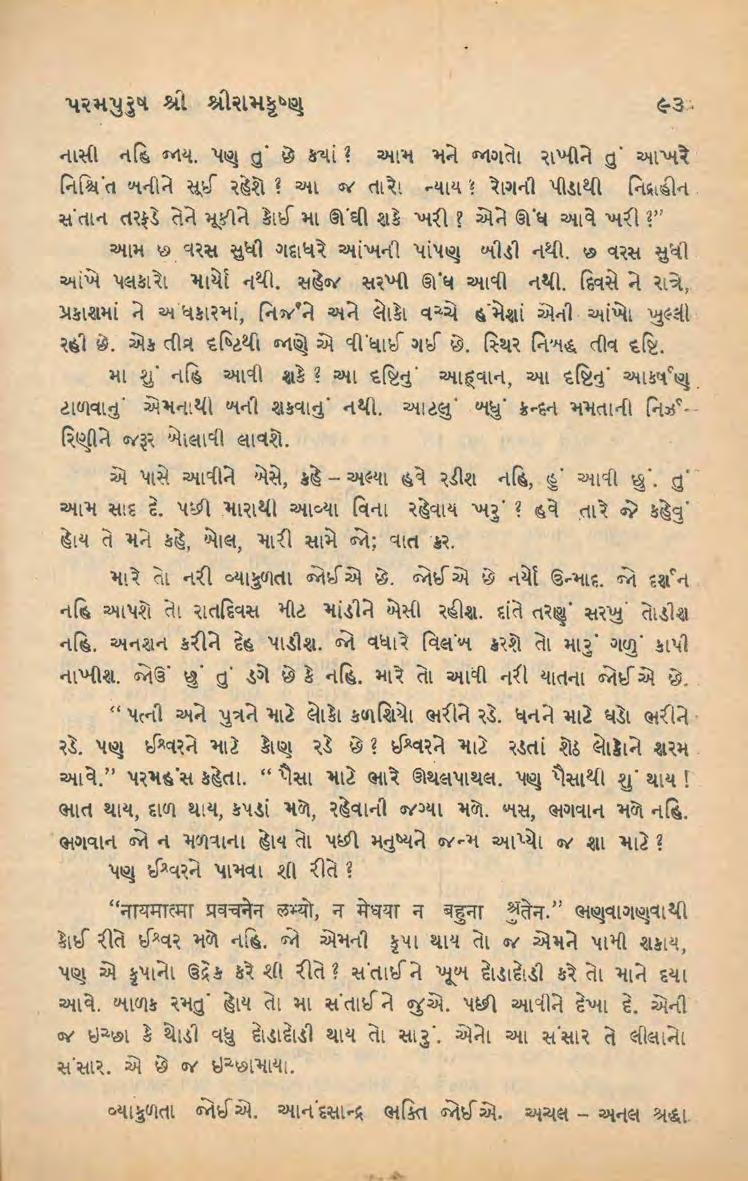 પરમપુરુષ શ્રી શ્રીરામકૃષ્ણ ૯૩
નાસી નહિ જાય. પણ તું છે ક્યાં ? આમ મને જાગતો રાખીને તું આખરે
નિશ્ચિંત બનીને સૂઈ રહેશે ? આ જ તારો ન્યાય ? રોગની પીડાથી નિદ્રાહીન
સંતાન તરફડે તેને મૂકીને કોઈ મા ઊંઘી શકે ખરી ? એને ઊંઘ આવે ખરી ?”
આમ છ વરસ સુધી ગદાધરે આંખની પાંપણ બીડી નથી. છ વરસ સુધી
આંખે પલકારો માર્યો નથી. સહેજ સરખી ઊંઘ આવી નથી. દિવસે ને રાત્રે,
પ્રકાશમાં ને અંધકારમાં, નિર્જને અને લોકો વચ્ચે હંમેશાં એની આંખો ખુલ્લી
રહી છે. એક તીવ્ર દૃષ્ટિથી જાણે એ વીંધાઈ ગઈ છે. સ્થિર નિબદ્ધ તીવ દૃષ્ટિ.
મા શું નહિ આવી શકે ? આ દૃષ્ટિનું આહ્‌વાન, આ દૃષ્ટિનું આકર્ષણ
ટાળવાનું એમનાથી બની શકવાનું નથી. આટલું બધું ક્રન્દન મમતાની નિર્ઝ-
રિણીને જરૂર બોલાવી લાવશે.
એ પાસે આવીને બેસે, કહે – અલ્યા હવે રડીશ નહિ, હું આવી છું. તું
આમ સાદ દે. પછી મારાથી આવ્યા વિના રહેવાય ખરું ? હવે તારે જે કહેવું
હોય તે મને કહે, બોલ, મારી સામે જો; વાત કર.
મારે તો નરી વ્યાકુળતા જોઈએ છે. જોઈએ છે નર્યો ઉન્માદ. જો દર્શન
નહિ આપશે તો રાતદિવસ મીટ માંડીને બેસી રહીશ. દાંતે તરણું સરખું તોડીશ
નહિ. અનશન કરીને દેહ પાડીશ. જો વધારે વિલંબ કરશે તો મારું ગળું કાપી
નાખીશ. જોઉં છું તું ડગે છે કે નહિ. મારે તો આવી નરી યાતના જોઈએ છે.
“પત્ની અને પુત્રને માટે લોકો કળશિયો ભરીને રડે. ધનને માટે ઘડો ભરીને
રડે. પણ ઈશ્વરને માટે કોણ રડે છે ? ઈશ્વરને માટે રડતાં શેઠ લોકોને શરમ
આવે.” પરમહંસ કહેતા. “પૈસા માટે ભારે ઊથલપાથલ. પણ પૈસાથી શું થાય !
ભાત થાય, દાળ થાય, કપડાં મળે, રહેવાની જગ્યા મળે. બસ, ભગવાન મળે નહિ.
ભગવાન જો ન મળવાના હોય તો પછી મનુષ્યને જન્મ આપ્યો જ શા માટે ?
પણ ઈશ્વરને પામવા શી રીતે ?
“नायमात्मा प्रवचनेन लभ्यो, न मेधया न बहुना श्रुतेन.” ભણવાગણવાથી
કોઈ રીતે ઈશ્વર મળે નહિ. જો એમની કૃપા થાય તો જ એમને પામી શકાય,
પણ એ કૃપાનો ઉદ્રેક કરે શી રીતે ? સંતાઈને ખૂબ દોડાદોડી કરે તો માને દયા
આવે. બાળક રમતું હોય તો મા સંતાઈને જુએ. પછી આવીને દેખા દે. એની
જ ઇચ્છા કે થોડી વધુ દોડાદોડી થાય તો સારું. એનો આ સંસાર તે લીલાનો
સંસાર. એ છે જ ઇચ્છામાયા.
વ્યાકુળતા જોઈએ. આનંદસાન્દ્ર ભક્તિ જોઈએ. અચલ – અનલ શ્રદ્ધા